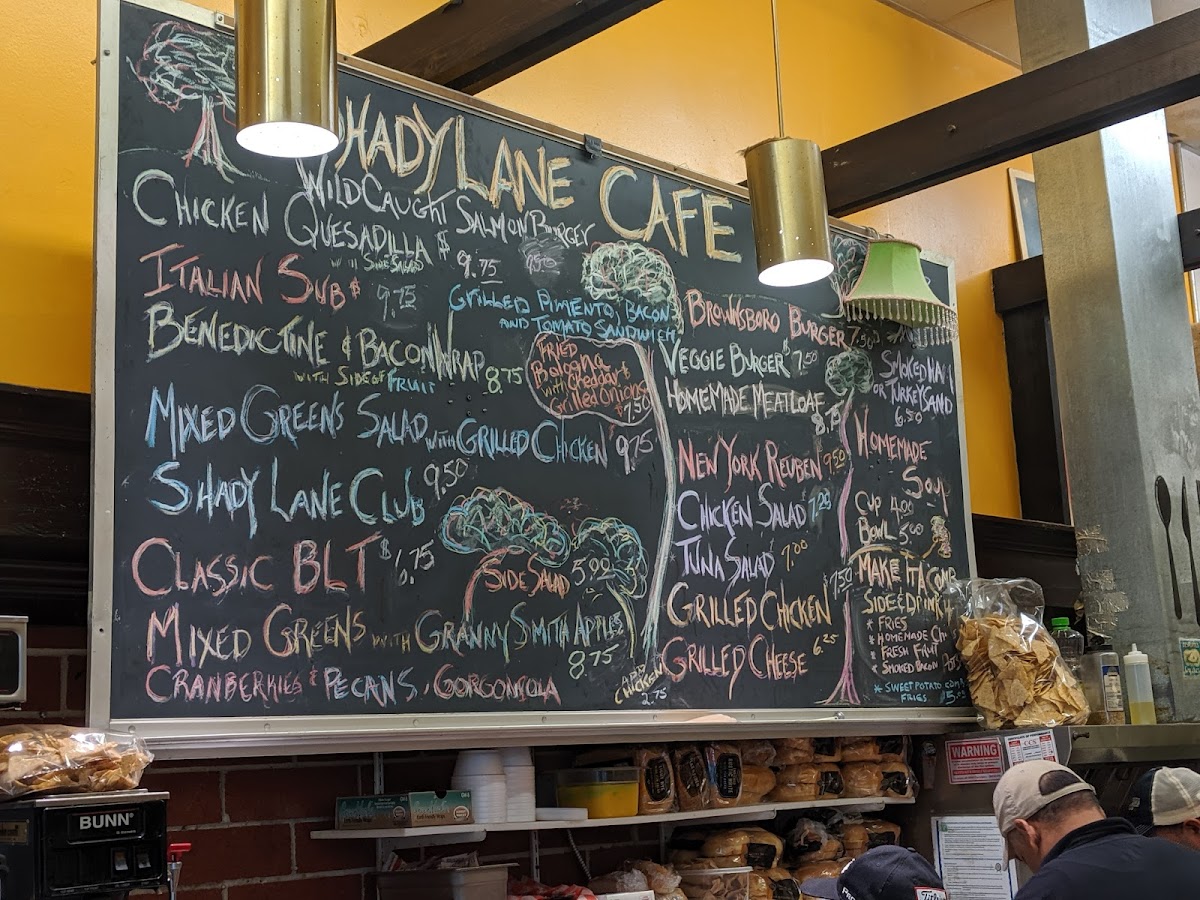 SHADY LANE CAFE
WILD CAUGHT SALMON BURGER
CHICKEN QUESADILLA $ 9.75
WITH SIDE SALAD
ITALIAN SUB $ 9.75
GRILLED PIMENTO, BACON
AND TOMATO SANDWICH
BENEDICTINE & BACON WRAP 8.75
WITH SIDE OF FRUIT
FRIED
Bologna
with Cheddar &
Grilled Onions
$7.50
MIXED GREENS SALAD WITH GRILLED CHICKEN 9.75
SHADY LANE CLUB 9.50
CLASSIC BLT $6.75
SIDE SALAD 5.00
MIXED GREENS WITH GRANNY SMITH APPLES
8.75
CRANBERRIES & PECANS, GORGONSOLA
ADD
CHICKEN
2.75
BROWNSBORO BURGER 7.50
VEGGIE BURGER $7.50
HOMEMADE MEATLOAF
NEW YORK REUBEN 9.50
CHICKEN SALAD
TUNA SALAD 7.00
GRILLED CHICKEN $7.50
GRILLED CHEESE 6.25
SMOKED HAM
OR TURKEY SAND
6.50
HOMEMADE
SOUP
CUP 4.00
BOWL 5.00
MAKE IT A COM
SIDE & DRINK
* FRIES
* HOMEMADE CH
* FRESH FRUIT
* SMOKED BACON
* SWEET POTATO COMB
FRIES
BUNN
WARNING